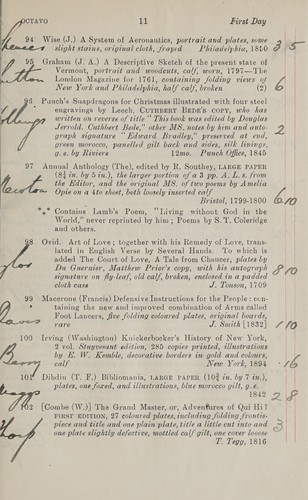 OCTAVO 11 First Day
94 Wise (J.) A System of Aeronautics, portrait and plates, some 3 5
slight stains, original cloth, frayed Philadelphia, 1850
95 Graham (J. A.) A Descriptive Sketch of the present state of
Vermont, portrait and woodcuts, calf, worn, 1797—The
London Magazine for 1761, containing folding views of
New York and Philadelphia, half calf, broken (2) 6
96 Punch's Snapdragons for Christmas illustrated with four steel
engravings by Leech, CUTHBERT BEDE'S COPY, who has
written on reverse of title "This book was edited by Douglas
Jerrold. Cuthbert Bede," other MS. notes by him and auto- 2
graph signature "Edward Bradley," preserved at end,
green morocco, panelled gilt back and sides, silk linings,
g. e. by Riviere 12mo. Punch Office, 1845
97 Annual Anthology (The), edited by R. Southey, LARGE PAPER
(8¾ in. by 5 in.), the larger portion of a 3 pp. A. L. s. from
Newton the Editor, and the original MS. of two poems by Amelia
Opie on a 4to sheet, both loosely inserted calf 6 10
Bristol, 1799-1800
*** Contains Lamb's Poem, "Living without God in the
World," never reprinted by him; Poems by S. T. Coleridge
and others.
98 Ovid. Art of Love; together with his Remedy of Love, trans-
lated in English Verse by Several Hands. To which is
added The Court of Love, A Tale from Chaucer, plates by
Du Guernier, Matthew Prior's copy, with his autograph
signature on fly-leaf, old calf, broken, enclosed in a padded 8 10
cloth case J. Tonson, 1709
99 Macerone (Francis) Defensive Instructions for the People: con-
taining the new and improved combination of Arms called
Foot Lancers, five folding coloured plates, original boards,
rare J. Smith [1832] 1 10
100 Irving (Washington) Knickerbocker's History of New York,
2 vol. Stuyvesant edition, 285 copies printed, illustrations
by E. W. Kemble, decorative borders in gold and colours,
Berry calf New York, 1894 16
101 Dibdin (T. F.) Bibliomania, LARGE PAPER (10¾ in. by 7 in.),
plates, one foxed, and illustrations, blue morocco gilt, g. e.
Maggs 1842 2 8
102 [Combe (W.)] The Grand Master, or, Adventures of Qui Hi?
FIRST EDITION, 27 coloured plates, including folding frontis-
piece and title and one plain plate, title a little cut into and 3
one plate slightly defective, mottled calf gilt, one cover loose
T. Tegg, 1816